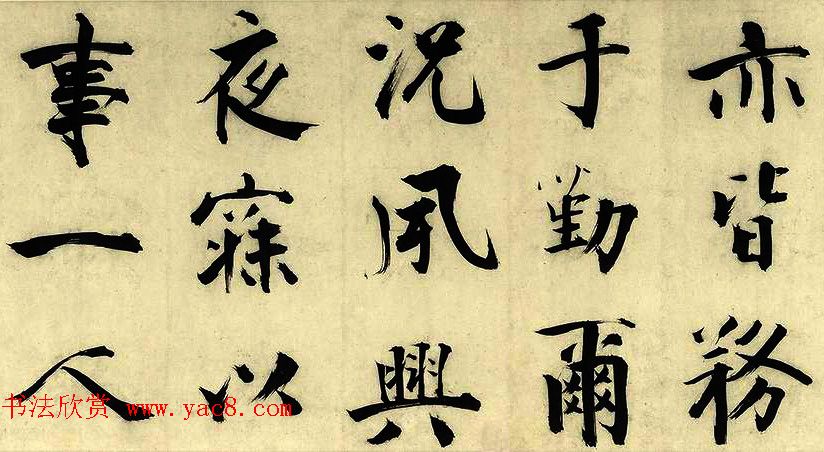 亦皆務
于勤爾
况夙興
夜寐以
事一人
书法欣赏 www.yac8.com